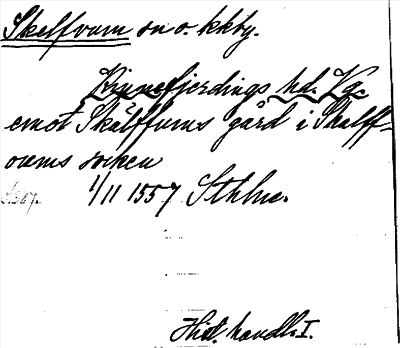 Skelfvum sn o. kkby.
Kinnefjerdings hd. Vg.
emot Skälffvums gård i Skalff-
vems socken
1/11 1557 Sthlm.
Hist. handl. I.